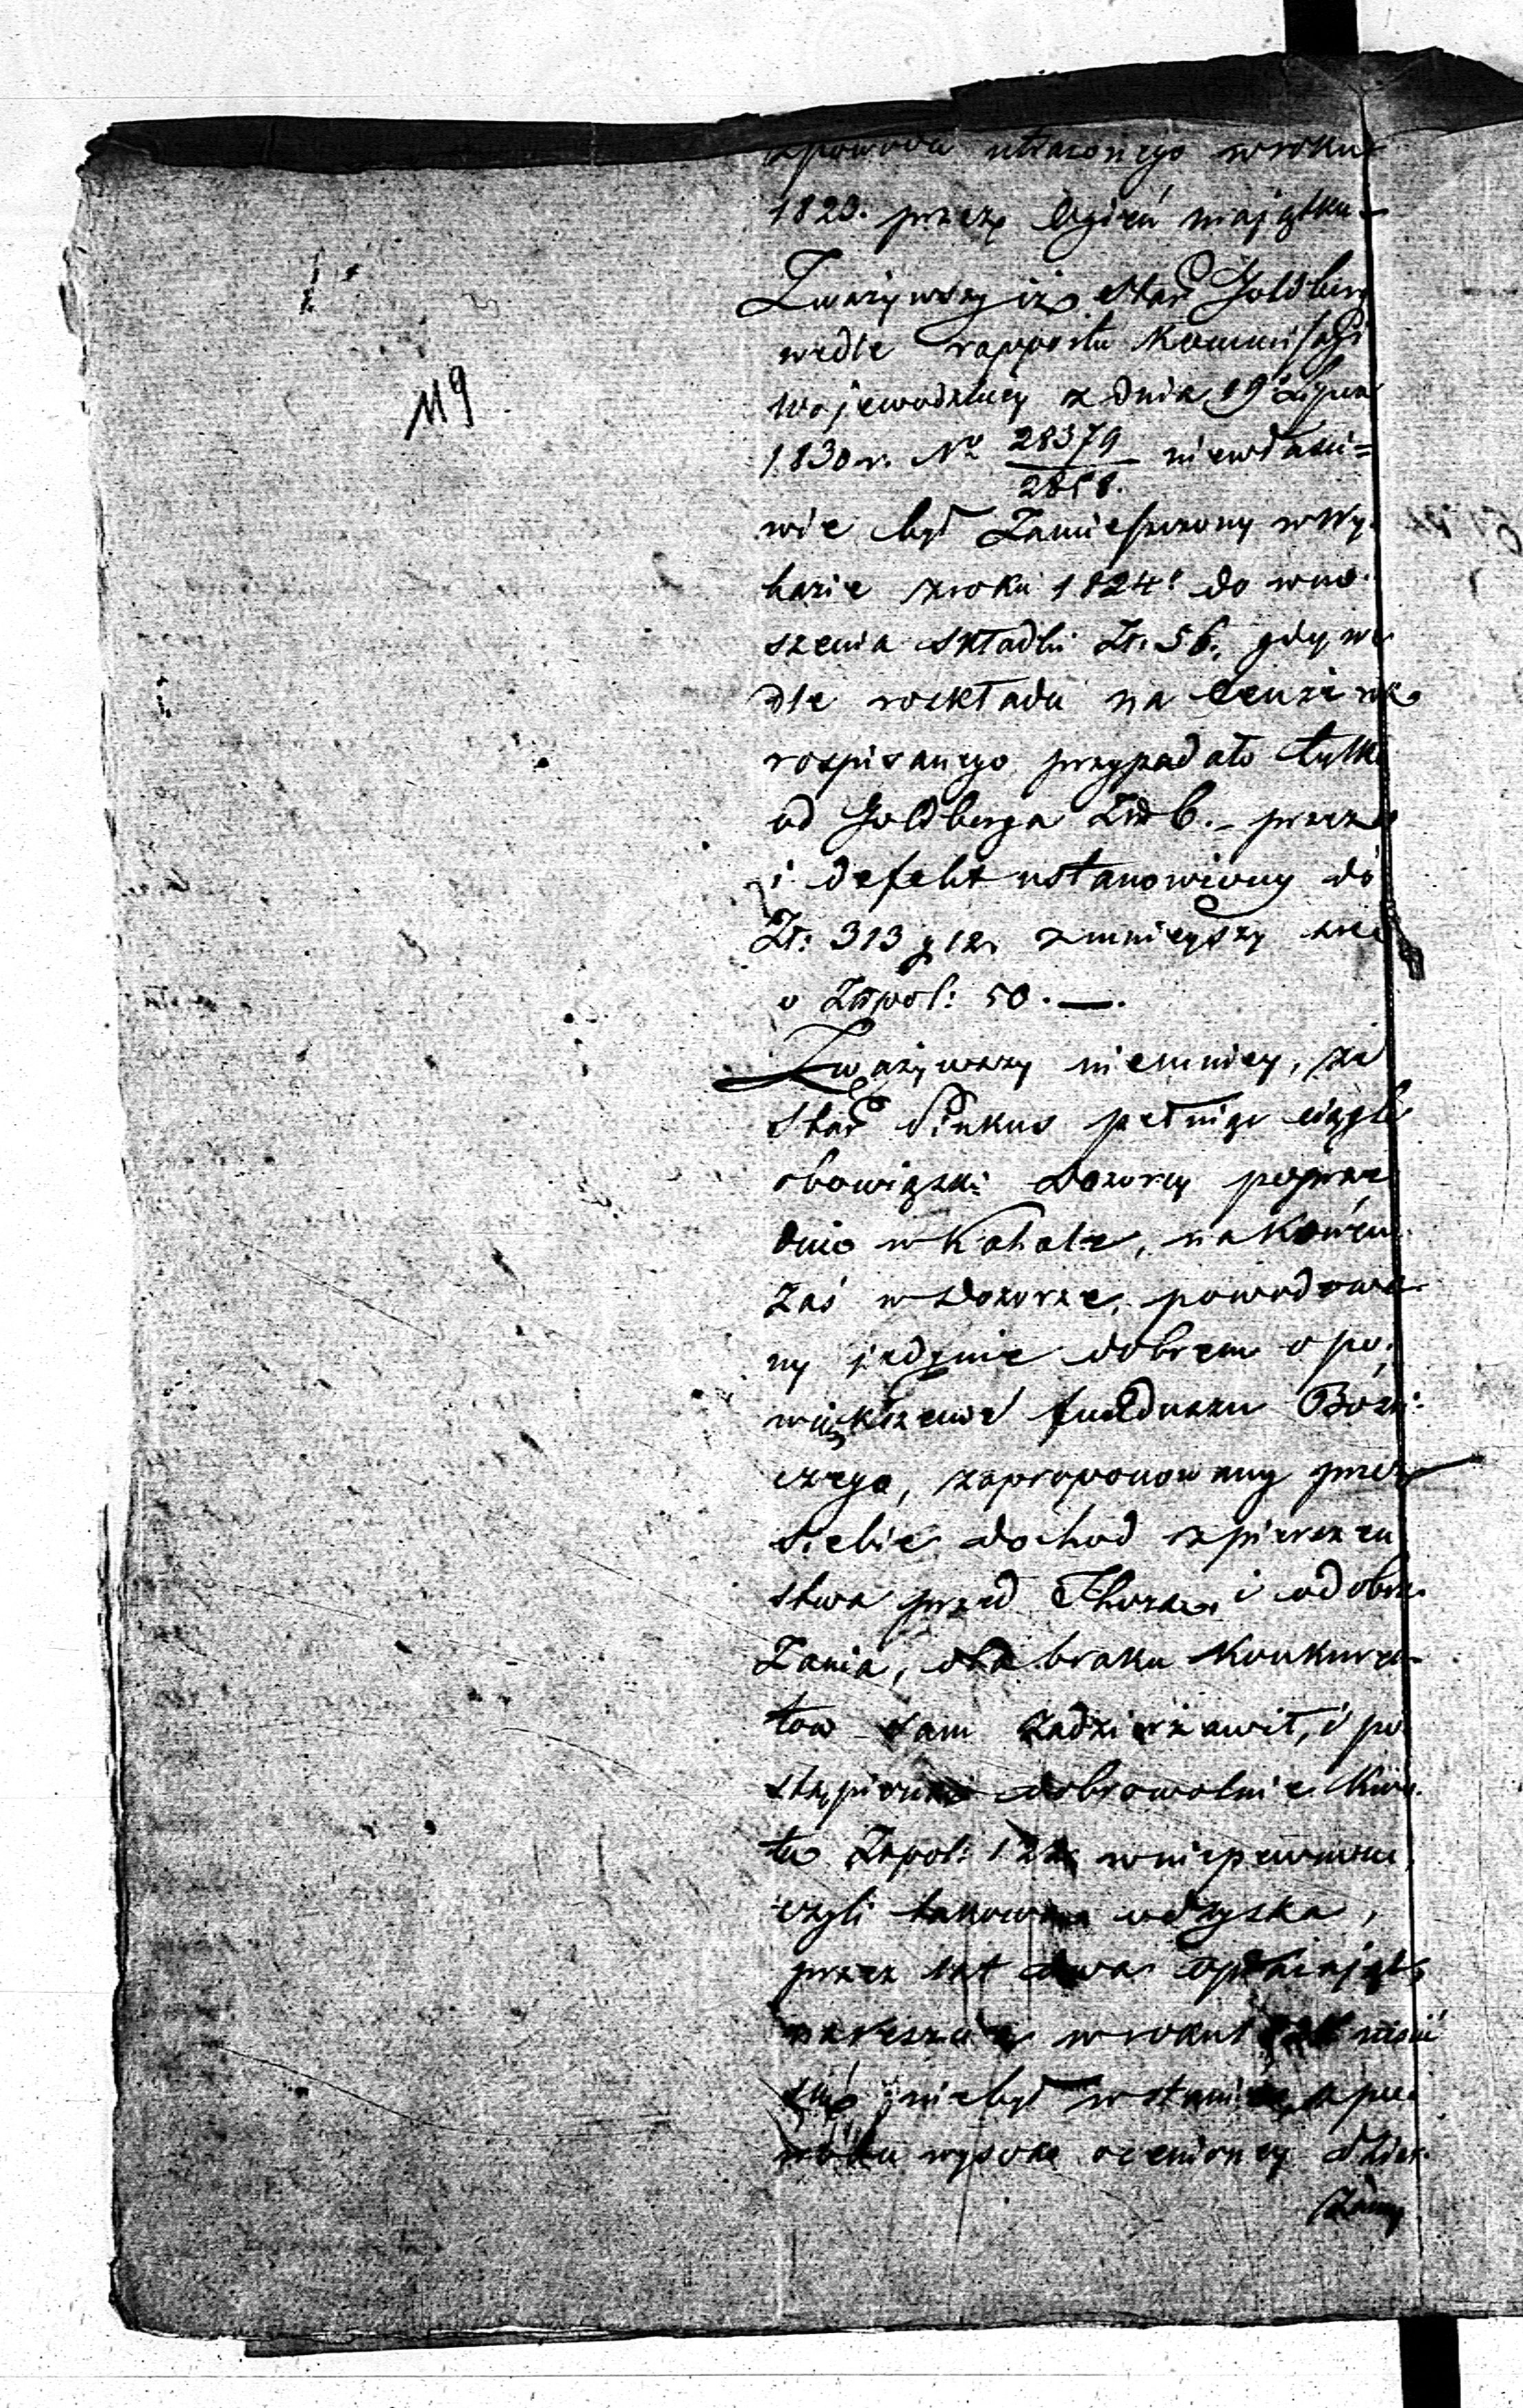 zpowodu utraconego wroku
1823. przez Ogień majątku
Zważywszy iż Star Goldberg
wedle rapportu Kommissyi
Wojewodzkiey z dnia 19 Lipca
119
1830 r. No 28379/2858. niewłaści=
wie był Zamieszczony w Wy-
kazie zroku 1824. do wno-
szenia składki Zł. 56, gdy we
dle rozkładu na
rozpisanego przypadało tylko
od Goldberga Złp 6. - przez
i defekt ustanowiony do
Zł: 313 g 12. zmnieyszy się
o Złpol: 50. —.
Zważywszy niemniey, że
Star Pinkus pełniąc ciągle
obowiązki Dozorcy poprze
dnio w Kahale, nakoniec
Zaś w Dozorze, powodowa
ny jedynie dobrem o po-
większenie funduszu Bożni-
czego, zaproponowany przez
siebie dochod z pierszeń
stwa przed Thorą i od obrze-
Zania, dla braku Konkuren
tow sam zadzierżawił, i po
stąpioną dobrowolnie Kwo-
tę Złpol: wniepewności
czyli takową odzyska,
przez lat dwa opłacając,
nareszcie w roku
niebył w stanie
wysoko ocenioney dzier-
żawy